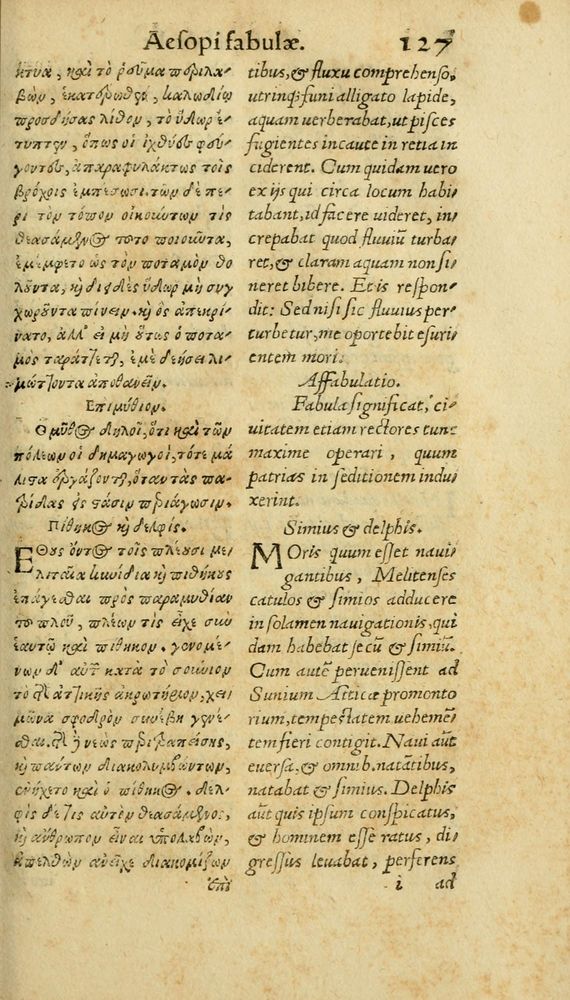 Aesopi fabulæ. 127
κτυα, καὶ τὸ ῥεῦμα περιλα-
βὼν, ἑκατέρωθεν, καλωδίῳ
προσδήσας λίθον, τὸ ὕδωρ ἔ-
τυπτεν, ὅπως οἱ ἰχθύες φεύ-
γοντες, ἀπαραφυλάκτως τοῖς
βρόχοις ἐμπέσωσι. τῶν δὲ πε-
ρὶ τὸν τόπον οἰκούντων τις
θεασάμενος τοῦτο ποιοῦντα,
ἐμέμφετο ὡς τὸν ποταμὸν θο-
λοῦντα, καὶ διειδὲς ὕδωρ μὴ συγ
χωροῦντα πίνειν. καὶ ὃς ἀπεκρί-
νατο, ἀλλ' εἰ μὴ οὕτως ὁ ποτα-
μὸς ταράττεται, ἐμὲ δεήσει λι-
μώττοντα ἀποθανεῖν.
Ἐπιμύθιον.
Ὁ μῦθος δηλοῖ, ὅτι καὶ τῶν
πόλεων οἱ δημαγωγοὶ, τότε μά
λιστα ἐργάζονται, ὅταν τὰς πα-
τρίδας εἰς στάσιν περιάγωσιν.
Πίθηκος καὶ δελφίς.
Ἔθους ὄντος τοῖς πλέουσι με-
λιταῖα κυνίδια καὶ πιθήκους
ἐπάγεσθαι πρὸς παραμυθίαν
τοῦ πλοῦ, πλέων τις εἶχε σὺν
ἑαυτῷ καὶ πίθηκον. γενομέ-
νων δ' αὐτῶν κατὰ τὸ σούνιον
τὸ τῆς ἀττικῆς ἀκρωτήριον, χει-
μῶνα σφοδρὸν συνέβη γενέ-
σθαι. τῆς νεὼς περιτραπείσης,
καὶ πάντων διακολυμβώντων,
ἐνήχετο καὶ ὁ πίθηκος. δελ-
φὶς δέ τις αὐτὸν θεασάμενος,
καὶ ἄνθρωπον εἶναι ὑπολαβὼν,
ὑπελθὼν ἀνεῖχε διακομίζων
ἐπὶ
tibus, & fluxu comprehenso,
utrinq; funi alligato lapide,
aquam uerberabat, ut pisces
fugientes incaute in retia in
ciderent. Cum quidam uero
ex ijs qui circa locum habi-
tabant, id facere uideret, in-
crepabat quod fluuiũ turba-
ret, & claram aquam non si-
neret bibere. Et is respon-
dit: Sed nisi sic fluuius per-
turbetur, me oportebit esuri-
entem mori.
Affabulatio.
Fabula significat, ci-
uitatem etiam rectores tunc
maxime operari, quum
patrias in seditionem indu-
xerint.
Simius & delphis.
MOris quum esset naui-
gantibus, Melitenses
catulos & simios adducere
in solamen nauigationis, qui
dam habebat secũ & simiũ.
Cum autẽ peruenissent ad
Sunium Atticæ promonto
rium, tempestatem uehemẽ-
tem fieri contigit. Naui aũt
euersa, & omnib. natãtibus,
natabat & simius. Delphis
aũt quis ipsum conspicatus,
& hominem esse ratus, di-
gressus leuabat, perferens
i ad